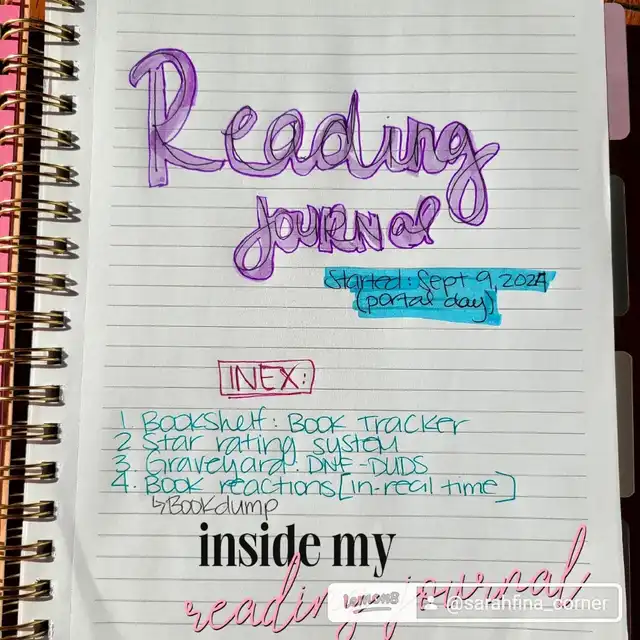 Reading
Journal
Started: Sept 9, 2024
(portal day)
INEX:
1 Bookshelf: Book Tracker
2 Star rating system
3 Graveyard: DNF-DUDS
4. Book reactions [in-real time]
↳Bookdump
inside my
reading journal
lemon8 @sarahfina_corner